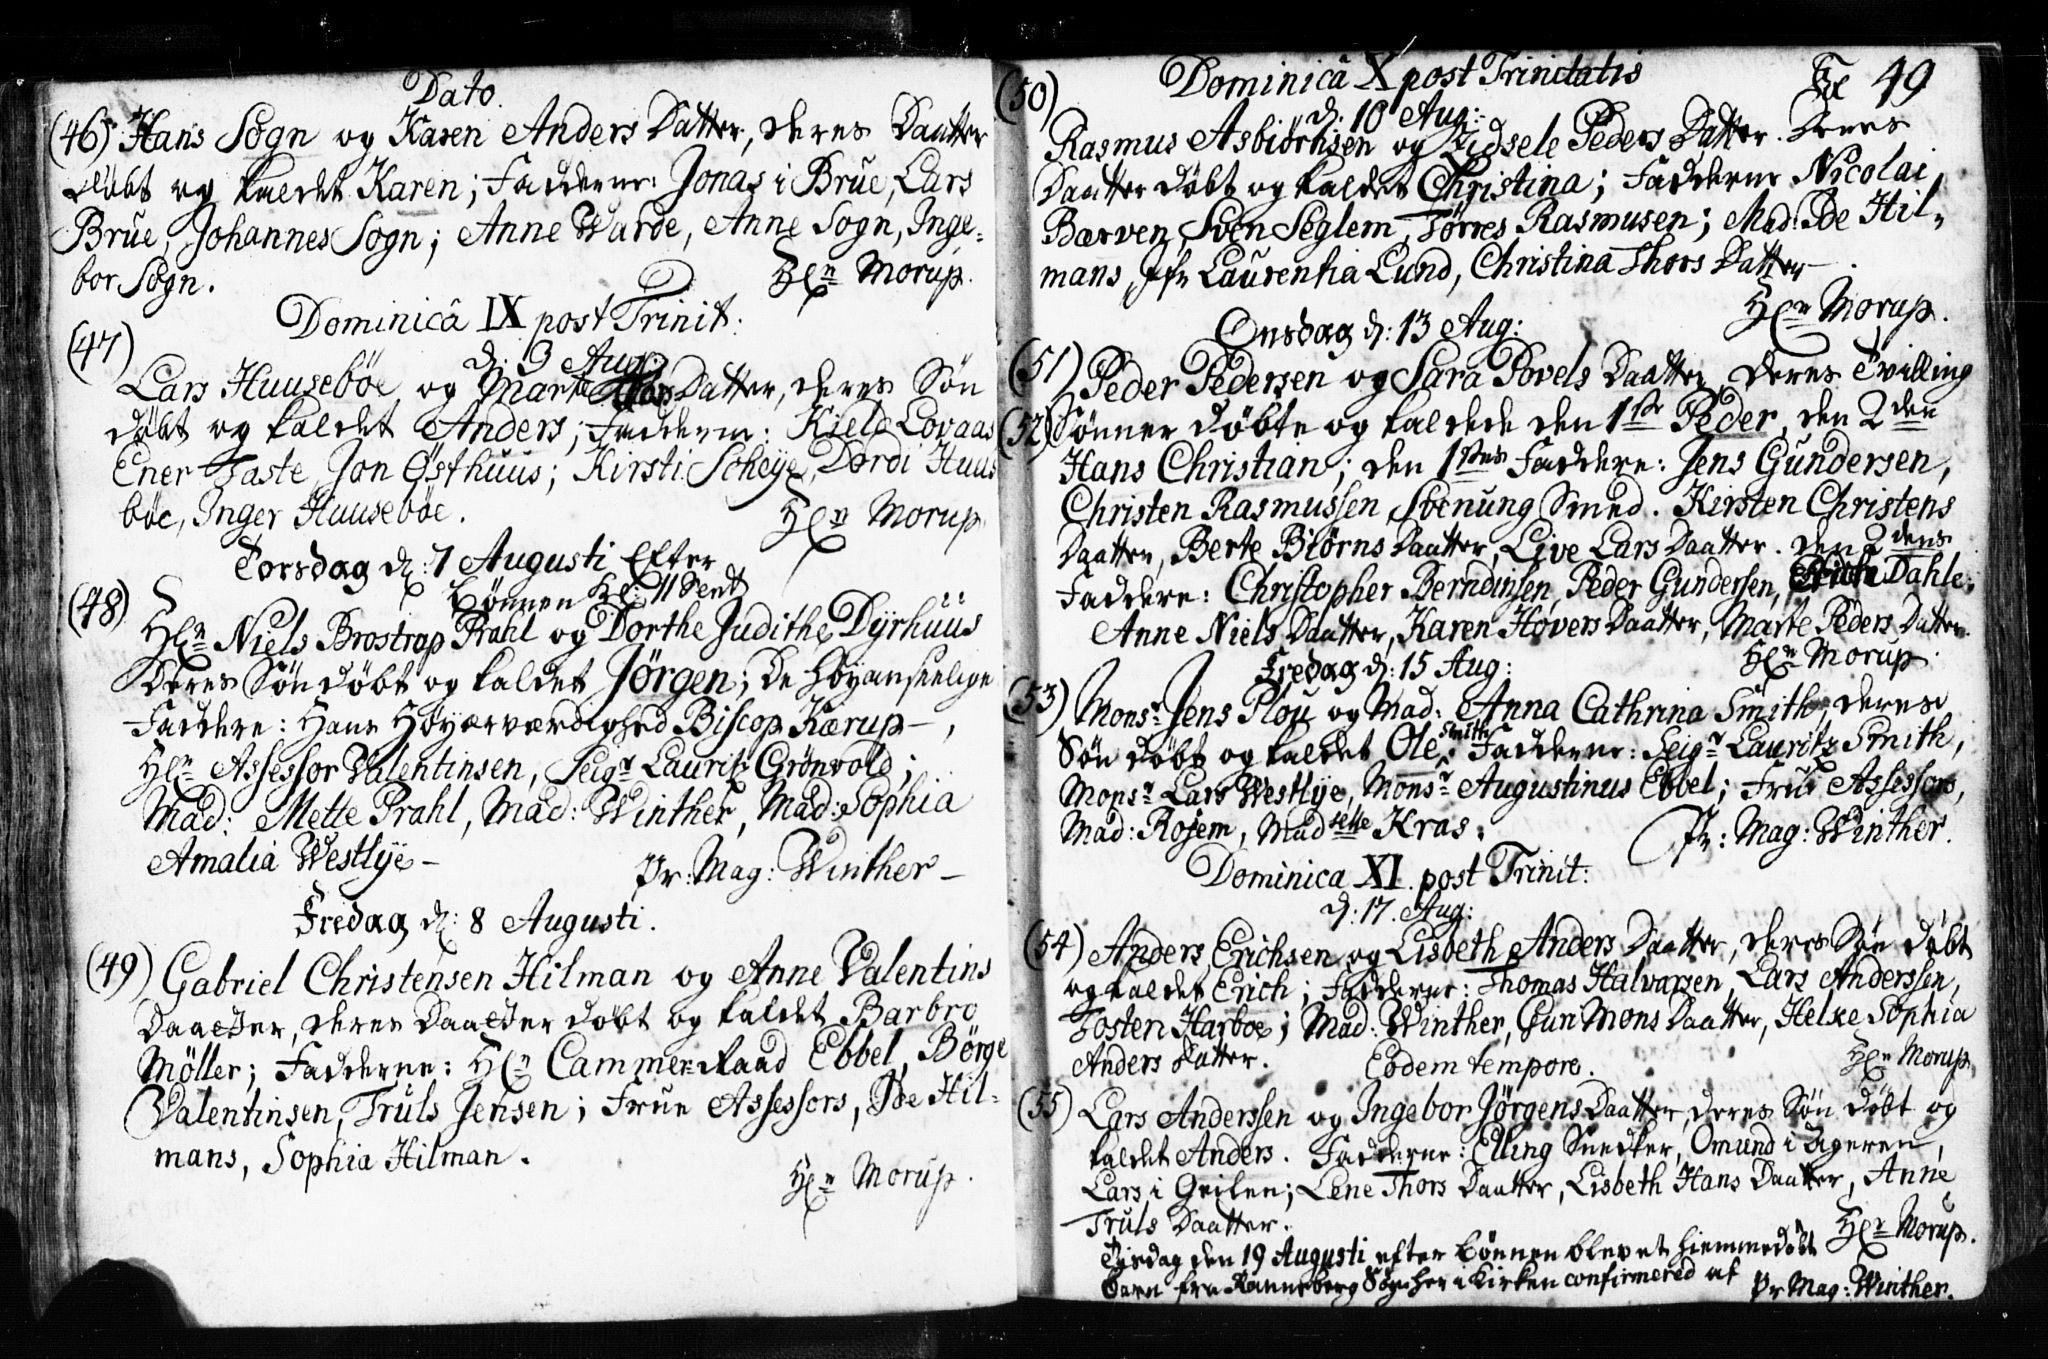 Dato.
(46) Hans Sogn og Karen Anders Datter, deres Daatter
døbt og kaldet Karen; Fadderne: Jonas i Brue, Lars
Brue, Johannes Sogn; Anne Warde, Anne Sogn, Inge-
bor Sogn.
Hr Morup.
Dominicâ IX post Trinit:
d: 3 Aug:
(47)
Lars Huusebøe og Marte Datter, deres Søn
døbt og kaldet Anders; Fadderne: Kield Lovaas
Ener Taste, Jon Østhuus; Kirsti Scheye, Dordi Huus
bøe, Inger Huusebøe.
Hr Morup
Torsdag d: 7 Augusti Efter
Bønnen Kl: 11 Sent
(48)
Hr Niels Brostrop Prahl og Dorthe Judithe Dyrhuus
Deres Søn døbt og kaldet Jørgen; De Høyanseelige
Faddere: Hans Høyærværdighed Biscop Kærup-,
Hr Assessor Valentinsen, Seigr Laurits Grönvold;
Mad: Mette Prahl, Mad: Winther, Mad: Sophia
Amalia Westlye-
Pr: Mag: Winther-
Fredag d: 8 Augusti.
(49) Gabriel Christensen Hilman og Anne Valentins
Daatter, deres Daatter døbt og kaldet Barbro
Möller; Fadderne: Hr Cammer-Raad Ebbel, Börge
Valentinsen, Truls Jensen; Frue Assessors, De Hil-
mans, Sophia Hilman.
Hr Morup.
Fol 49
(50) Dominicâ X post Trinitatis
d. 10 Aug:
Rasmus Asbiörnsen og Sidsele Peders Datter. Deres
Daatter døbt og kaldet Christina; Fadderne Nicolai
Bærven, Sven Seglem, Törres Rasmusen; Mad: De Hil-
mans, Jfr Laurentia Lund, Christina Thors Datter-.
Hr Morup.
Onsdag d: 13 Aug:
(51) Peder Pedersen og Sara Povels Daatter, Deres Tvilling
(52) Sønner døbte og kaldede den 1ste Peder, den 2den
Hans Christian; den 1stes Faddere: Jens Gundersen,
Christen Rasmussen, Svenung Smed. Kirsten Christens
Daatter, Berte Biörns Daatter, Live Lars Daatter. den 2dens
Faddere: Christopher Berndinsen, Peder Gundersen, Dahle;
Anne Niels Daatter, Karen Hovers Daatter, Marte Peders Datter.
Hr Morup.
Fredag d: 15 Aug:
(53) Monsr Jens Plou og Mad: Anna Cathrina Smith, deres
Søn døbt og kaldet Ole Smith; Fadderne: Seigr Laurits Smith,
Monsr Lars Westlye, Monsr Augustinus Ebbel; Frue Assessors,
Mad: Rosem, Madselle Kras.
Pr: Mag: Winther.
Dominica XI. post Trinit:
d: 17. Aug:
(54) Anders Erichsen og Lisbeth Anders Daatter, deres Søn døbt
og kaldet Erich; Fadderne: Thomas Halvarsen, Lars Anderssen,
Tosten Harboe; Mad: Winther, Gun Mons Daatter, Helke Sophia
Anders Datter.
Hr Morup
Eodem tempore.
(55) Lars Anderssen og Ingebor Jörgens Daatter, deres Søn døbt og
kaldet Anders. Fadderne: Elling Snedker, Omund i Ageren,
Lars i Geilen; Lene Thors Daatter, Lisbeth Hans Daatter, Anne
Truls Daatter.
Hr Morup.
Tisdag den 19 Augusti efter Bønnen blev et hiemmedøbt
Barn fra Ranneberg Sogn her i Kirken confirmered af
Pr Mag: Winther.